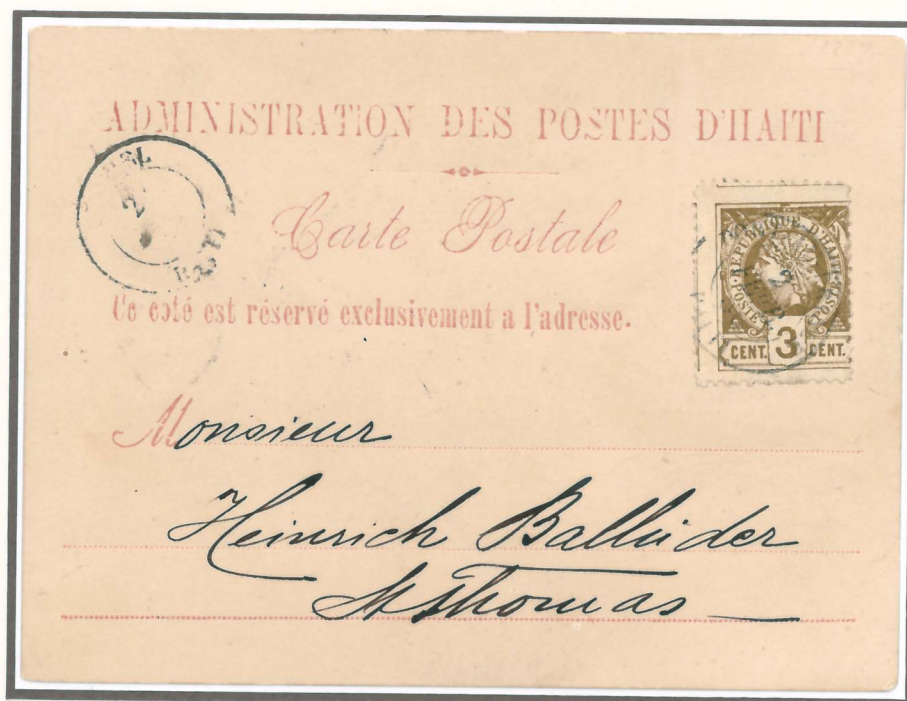 ADMINISTRATION DES POSTES D'HAITI
Carte Postale
Ce coté est réservé exclusivement a l'adresse.
REPUBLIQUE D'HAITI
POSTE POSTE
CENT. 3 CENT.
Monsieur
Heinrich
St Thomas